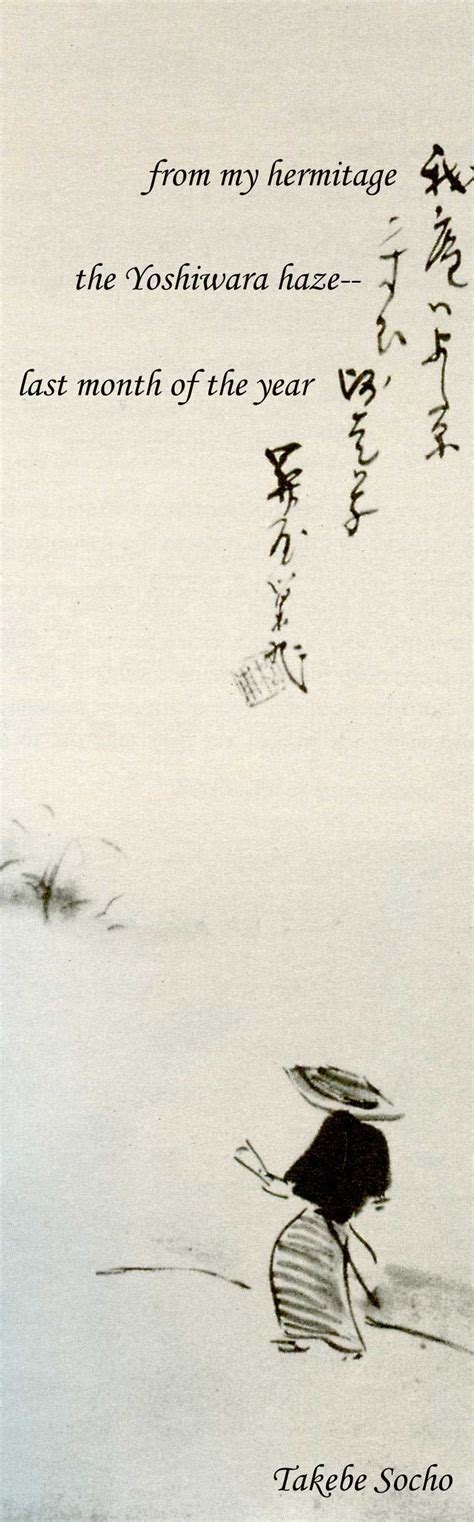 from my hermitage
the Yoshiwara haze--
last month of the year
我庵ハよし原
師走哉
Takebe Socho